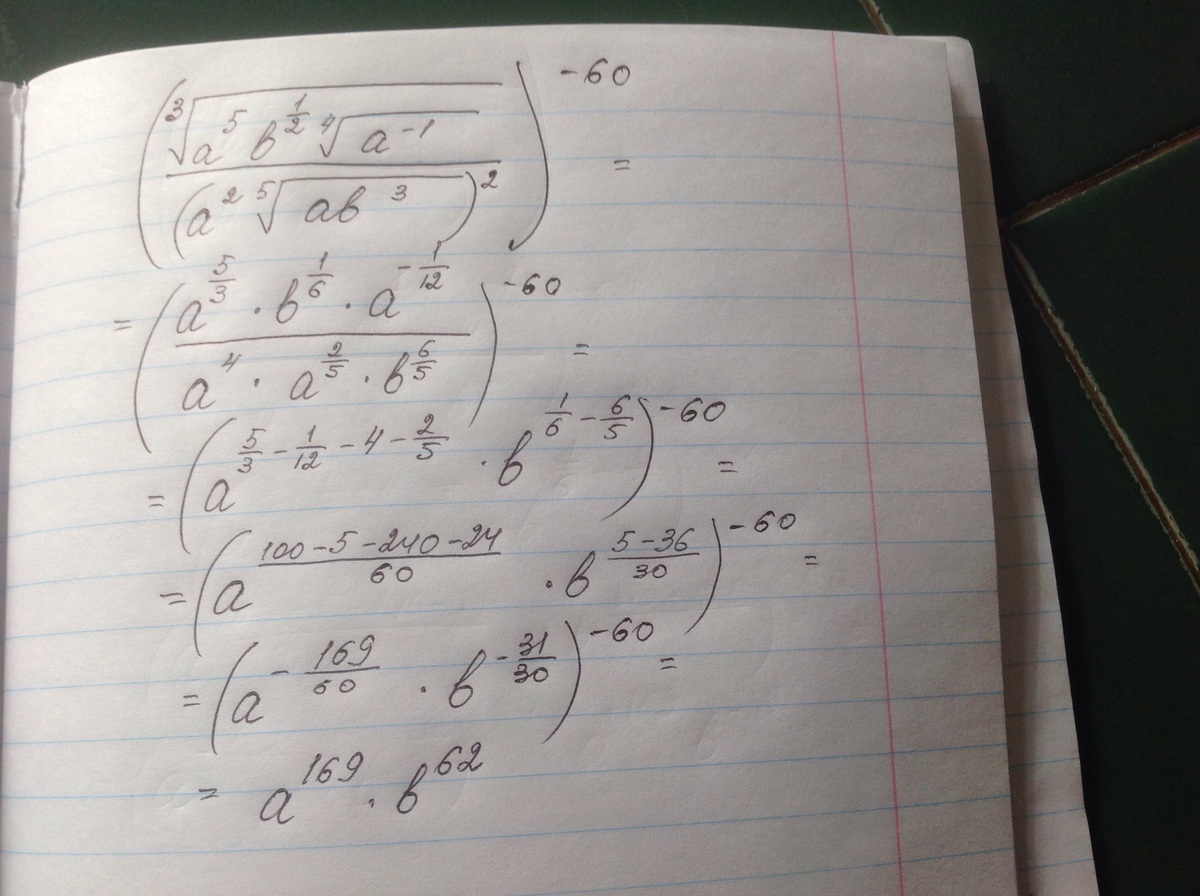 (∛(a⁵ b^(1/2) ∜(a⁻¹)) / (a² ⁵√(ab³))²)^(-60) =
= (a^(5/3) · b^(1/6) · a^(-1/12) / (a⁴ · a^(2/5) · b^(6/5)))^(-60) =
= (a^(5/3 - 1/12 - 4 - 2/5) · b^(1/6 - 6/5))^(-60) =
= (a^((100-5-240-24)/60) · b^((5-36)/30))^(-60) =
= (a^(-169/60) · b^(-31/30))^(-60) =
= a^169 · b^62